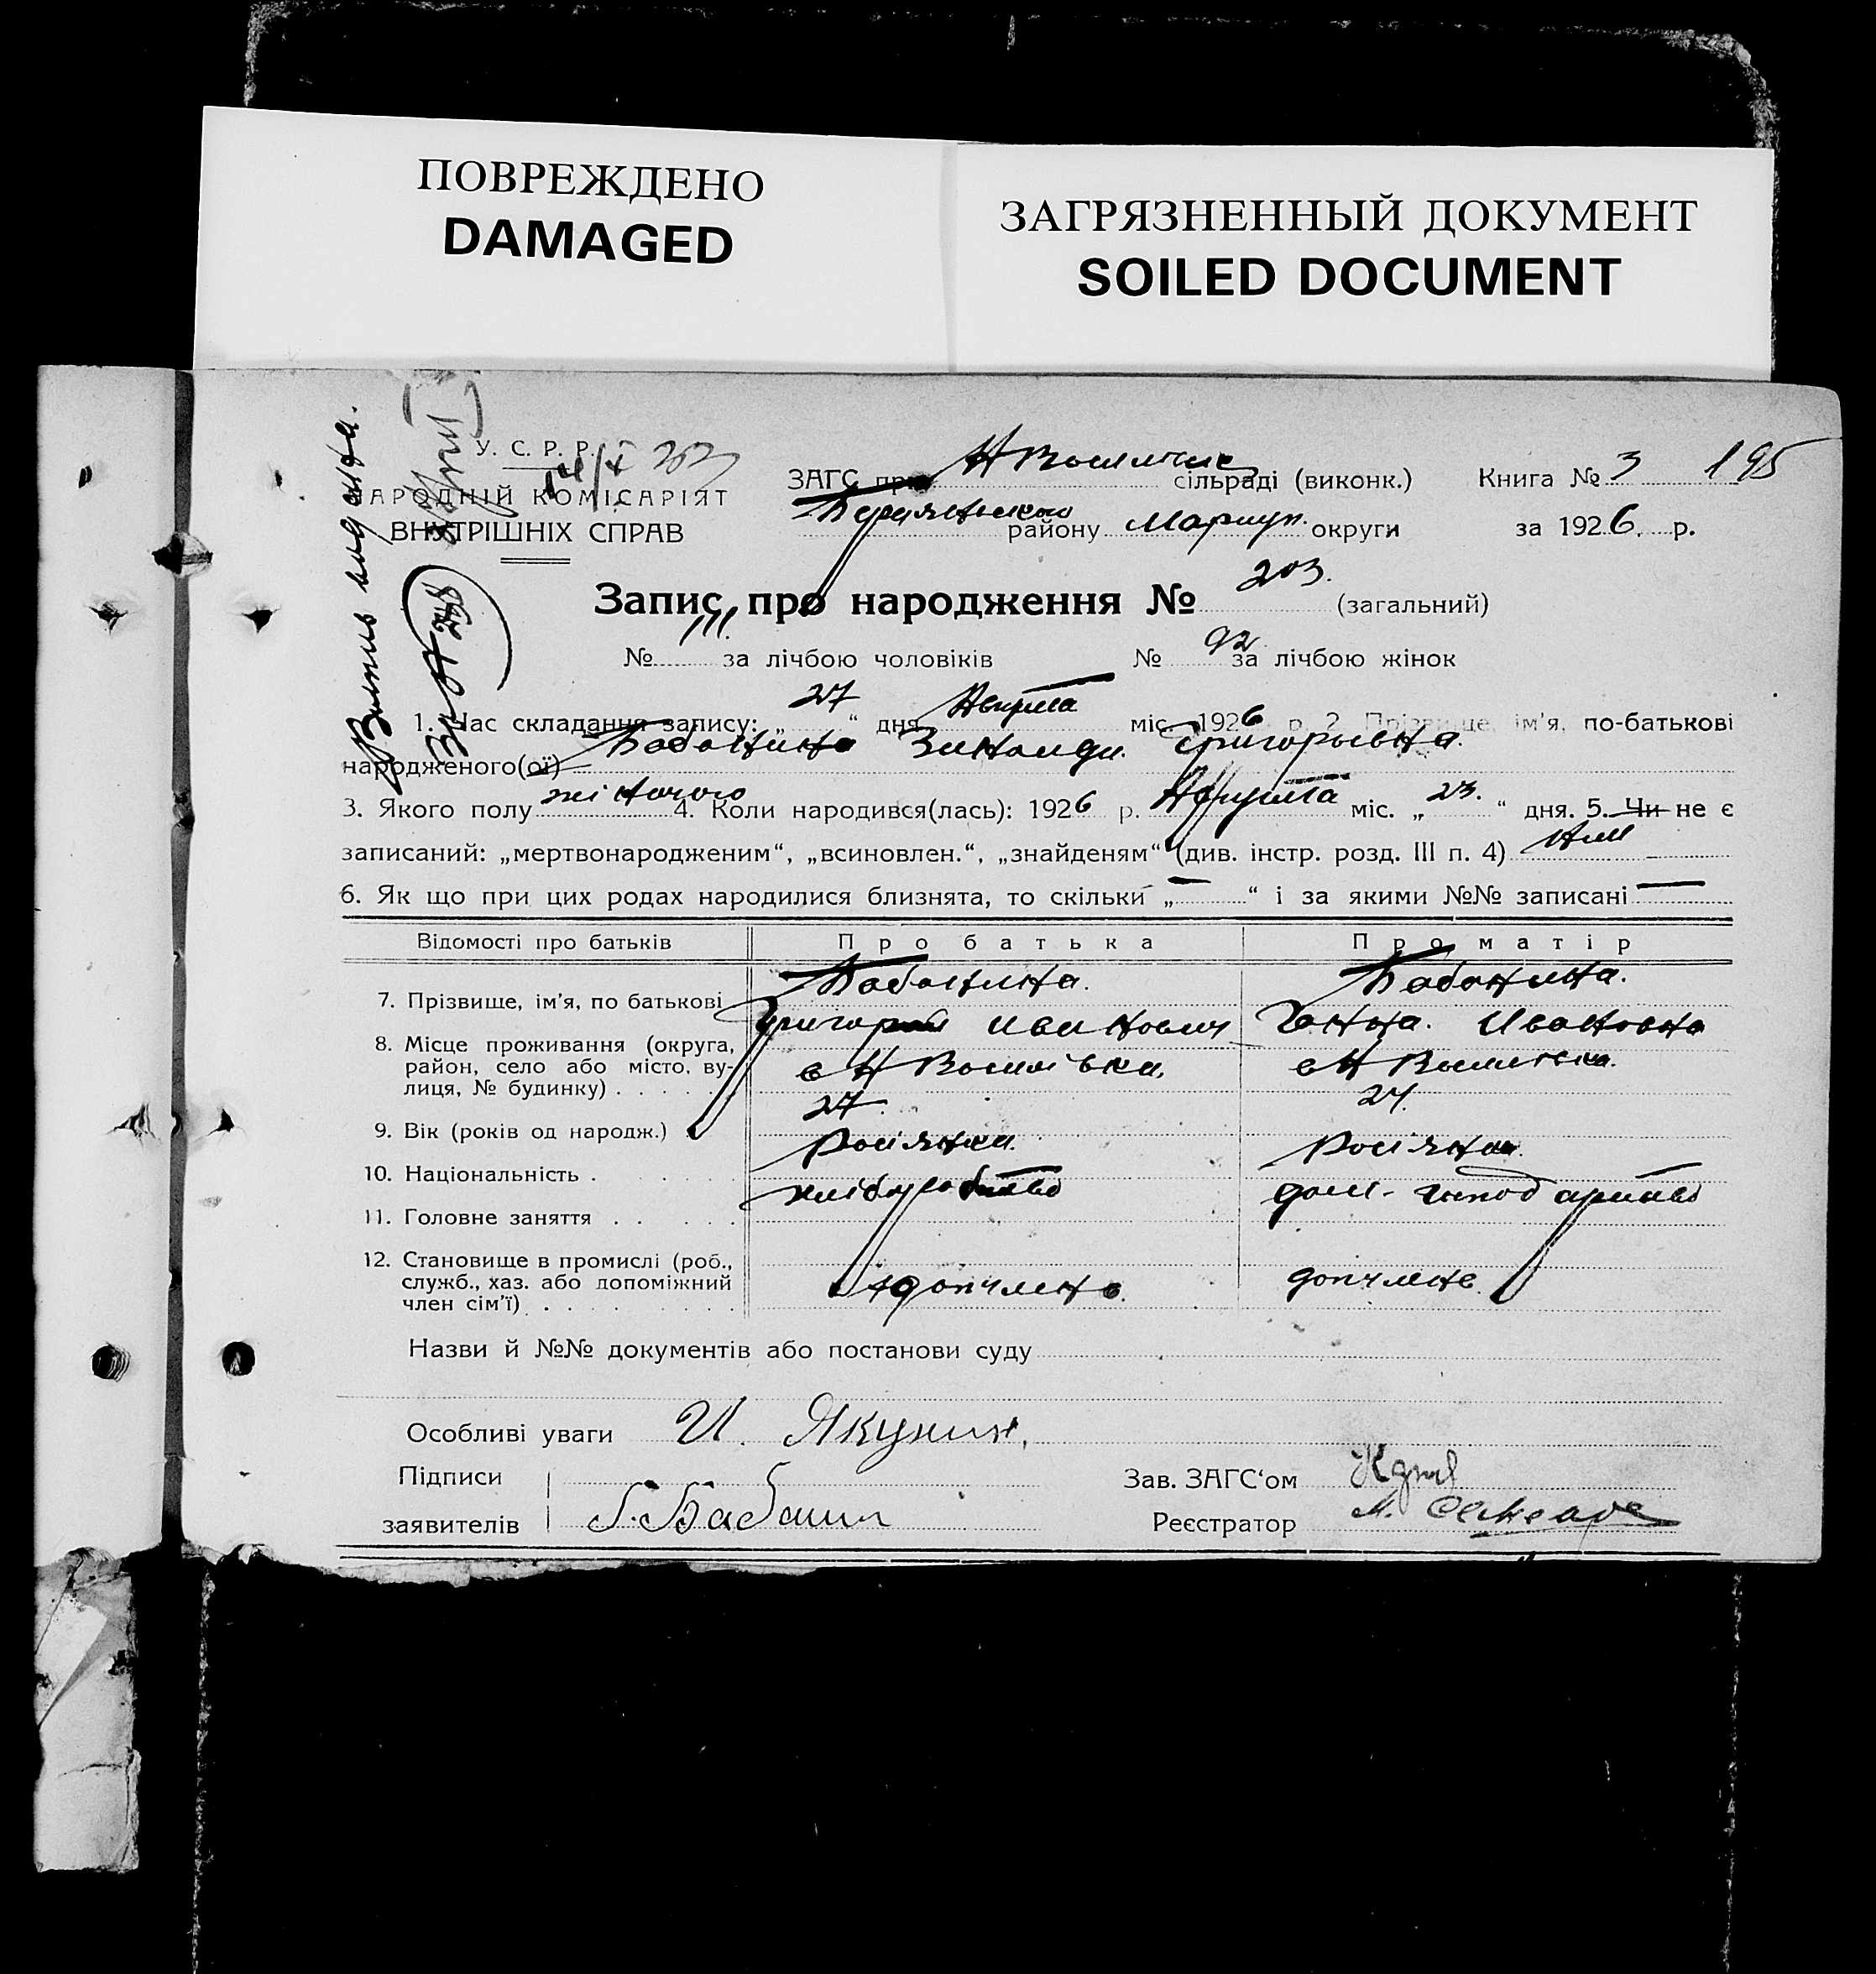 ПОВРЕЖДЕНО
DAMAGED
ЗАГРЯЗНЕННЫЙ ДОКУМЕНТ
SOILED DOCUMENT
У. С. Р. Р.
АРОДНІЙ КОМІСАРІЯТ
ВНУТРІШНІХ СПРАВ
Випись видана.
ЗАГС при сільраді (виконк.) Книга № 3 195
району Мариуп. округи за 1926 р.
Запис про народження № 203. (загальний)
№ за лічбою чоловіків № 92 за лічбою жінок
1. Час складання запису: „ 27 “ дня Априля міс. 1926 р. 2. Прізвище, ім’я, по-батькові
народженого(ої) Бабонина Зинаиди Григорьевна.
3. Якого полу жіночого 4. Коли народився(лась): 1926 р. Априля міс. „ 23. “ дня. 5. Чи не є
записаний: „мертвонародженим“, „всиновлен.“, „знайденям“ (див. інстр. розд. III п. 4)
6. Як що при цих родах народилися близнята, то скільки „ — “ і за якими №№ записані —
Відомості про батьків Про батька Про матір
7. Прізвище, ім’я, по батькові Бабонина. Бабонина.
Григорий Иванович Ганна. Ивановна
8. Місце проживання (округа, район, село або місто, вулиця, № будинку) с Н Василівка с Н
9. Вік (років од народж.) 27. 24.
10. Національність Росіянин. Росіянка.
11. Головне заняття хліборобство дом. господарство
12. Становище в промислі (роб., служб., хаз. або допоміжний член сім’ї)
Назви й №№ документів або постанови суду
Особливі уваги И. Якунин,
Підписи
заявителів Бабонин
Зав. ЗАГС‘ом
Реєстратор